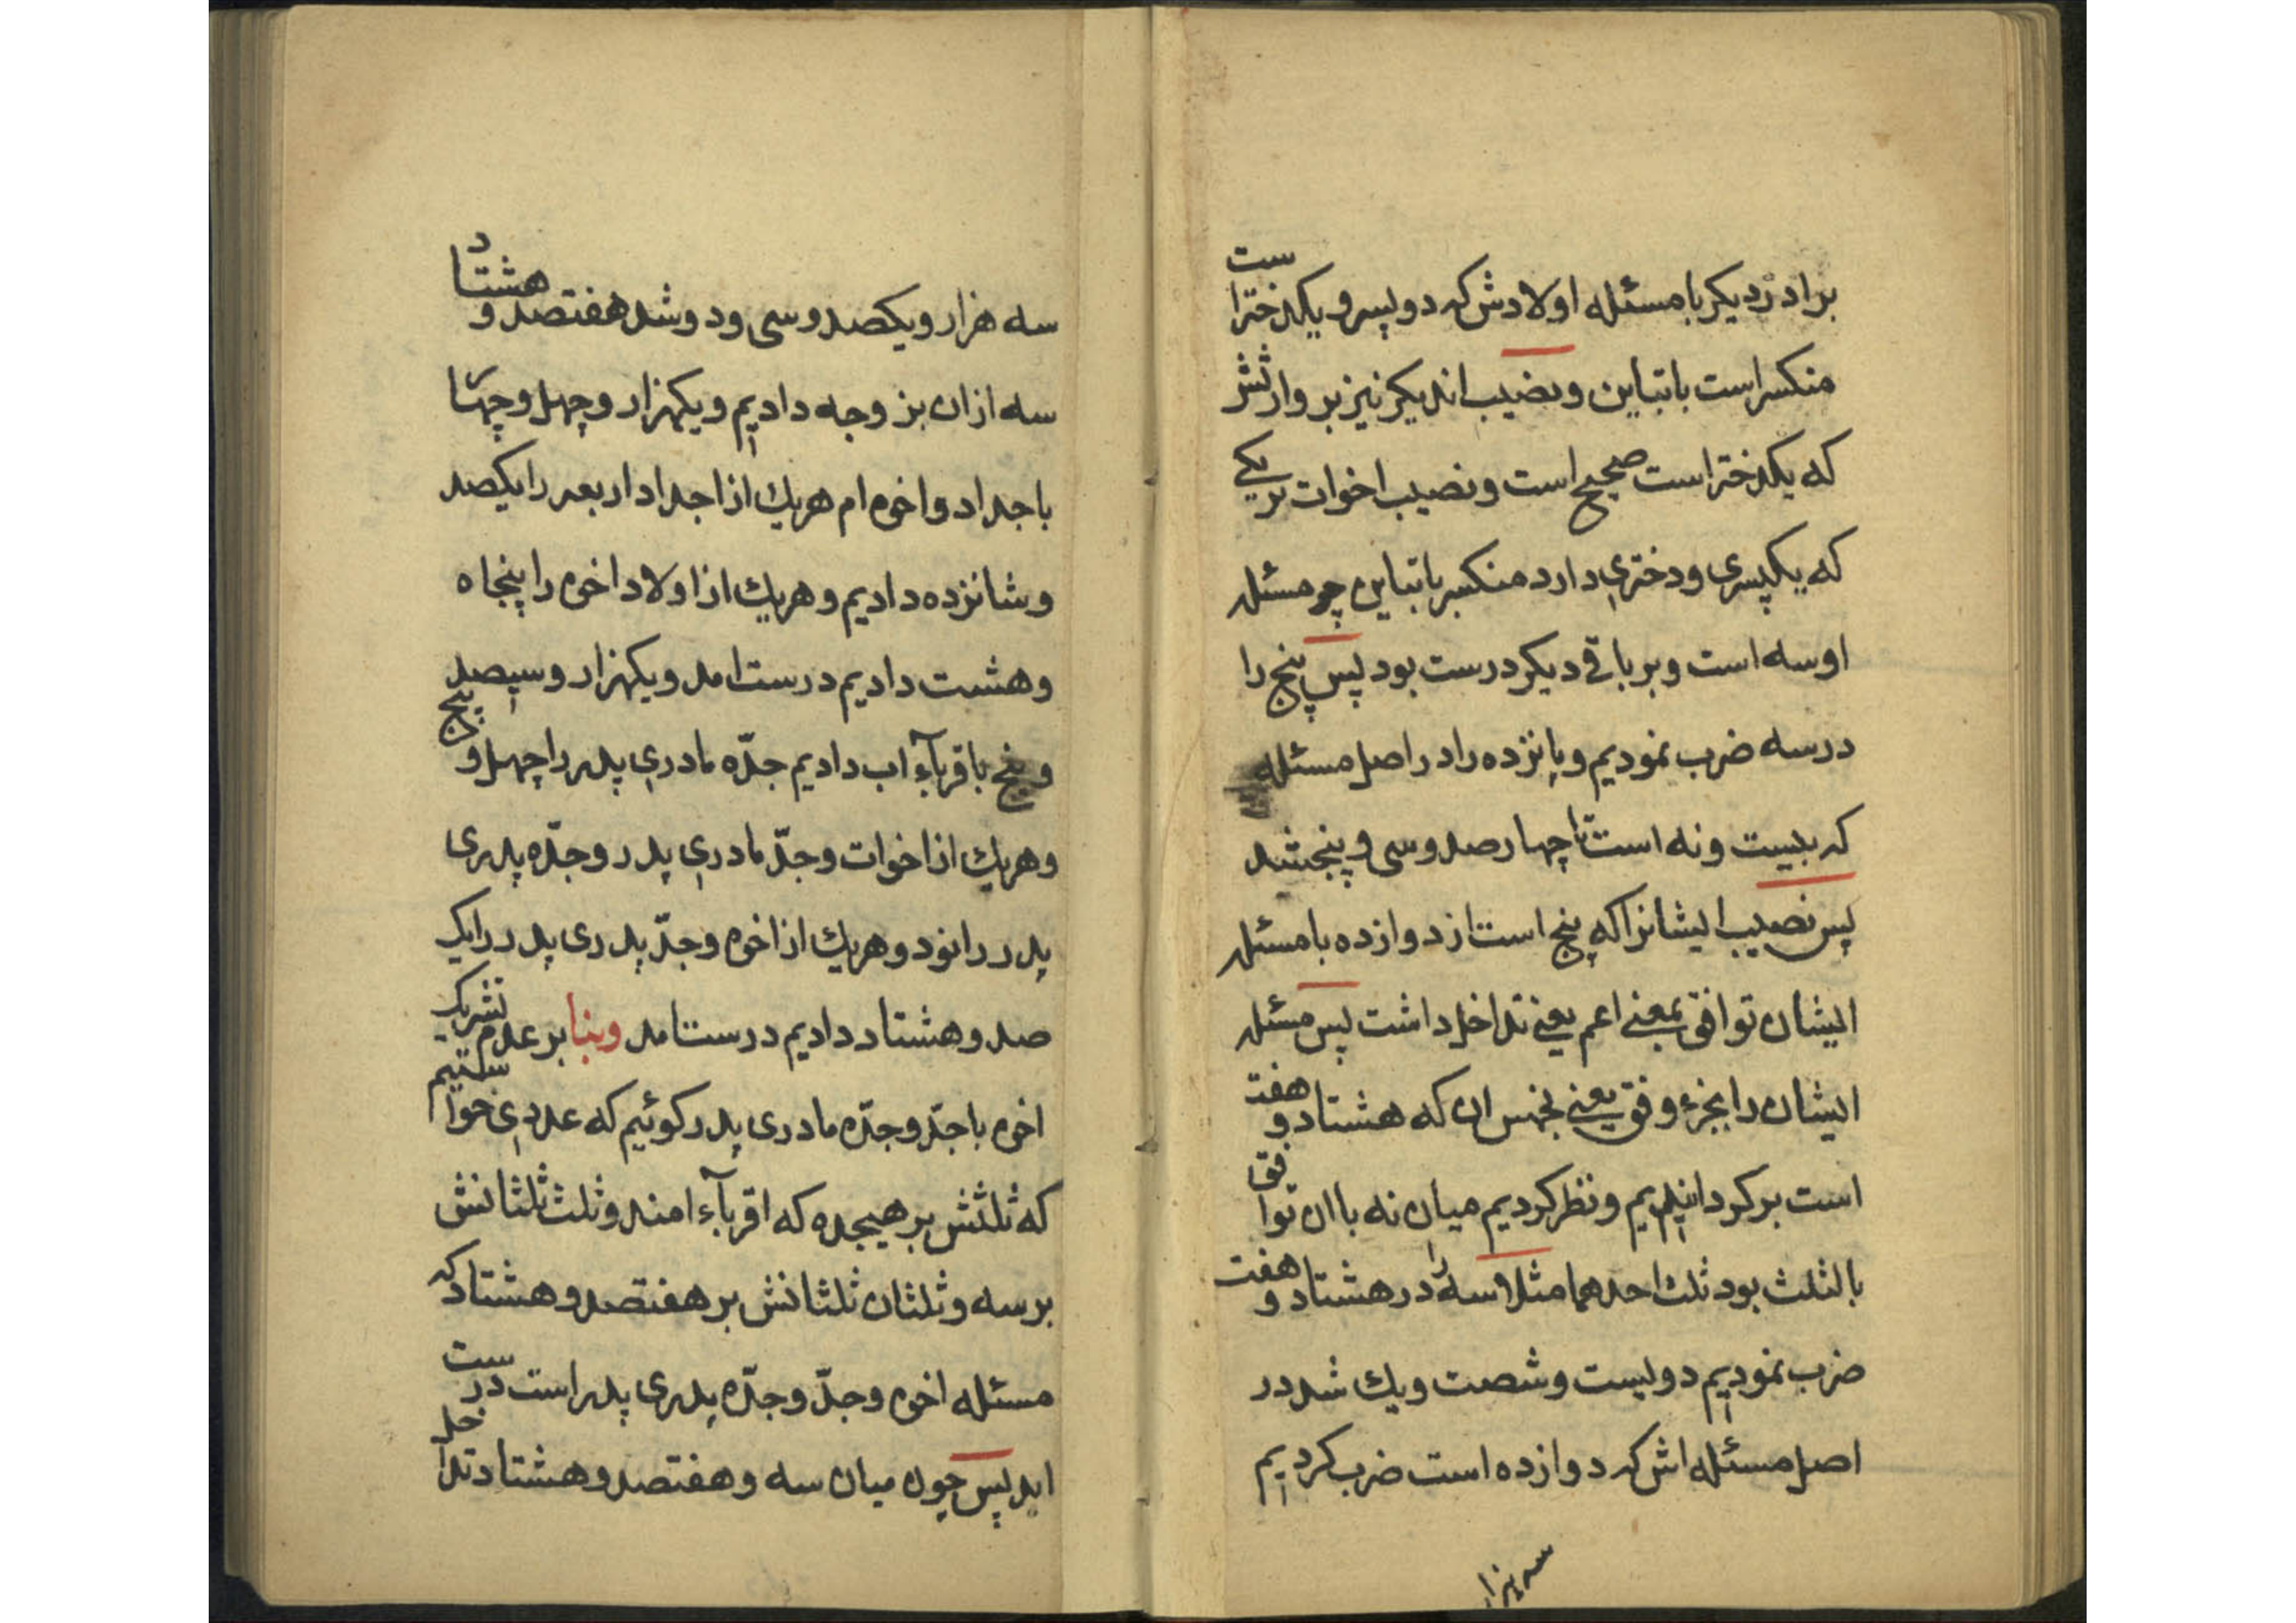 برادر دیکر با مسئله اولادش که دو پسر و یکدختر است
منکسر است با تباین و نصیب اندیکر نیز بر وارثش
که یکدختر است صحیح است و نصیب اخوات بر یکی
که یکپسری و دختری دارد منکسر با تباین چه مسئله
او سه است و بر باقی دیکر درست بود پس پنج را
در سه ضرب نمودیم و پانزده را در اصل مسئله
که بیست و نه است تا چهارصد و سی و پنجشد
پس نصیب ایشانرا که پنج است از دوازده با مسئله
ایشان توافق بمعنی اعم یعنی تداخل داشت پس مسئله
ایشان را بجزء وفق یعنی بخمس ان که هشتاد و هفت
است بر کردانیدیم و نظر کردیم میان نه با ان توافق
بالثلث بود ثلث احدهما مثلا سه را در هشتاد و هفت
ضرب نمودیم دویست و شصت و یك شد در
اصل مسئله اش که دوازده است ضرب کردیم
سه هزار
سه هزار و یکصد و سی و دو شد هفتصد و هشتاد
سه از ان بزوجه دادیم و یکهزار و چهل و چهار
با جداد و اخوه ام هر یك از اجداد اربعه را یکصد
و شانزده دادیم و هر یك از اولاد اخوه را پنجاه
و هشت دادیم درست امد و یکهزار و سیصد
و پنج باقربآء اب دادیم جدّه مادری پدر را چهل و پنج
و هر یك از اخوات و جدّ مادری پدر و جدّه پدری
پدر را نود و هر یك از اخوه و جدّ پدری پدر را یک
صد و هشتاد دادیم درست امد و بنا بر عدم تشریک
اخوه با جدّ و جدّه مادری پدر کوئیم که عددی خواستیم
که ثلثش بر هیجده که اقربآء امند و ثلث ثلثانش
بر سه و ثلثان ثلثانش بر هفتصد و هشتاد که
مسئله اخوه و جدّ و جدّه پدری پدر است درست
اید پس چون میان سه و هفتصد و هشتاد تداخل